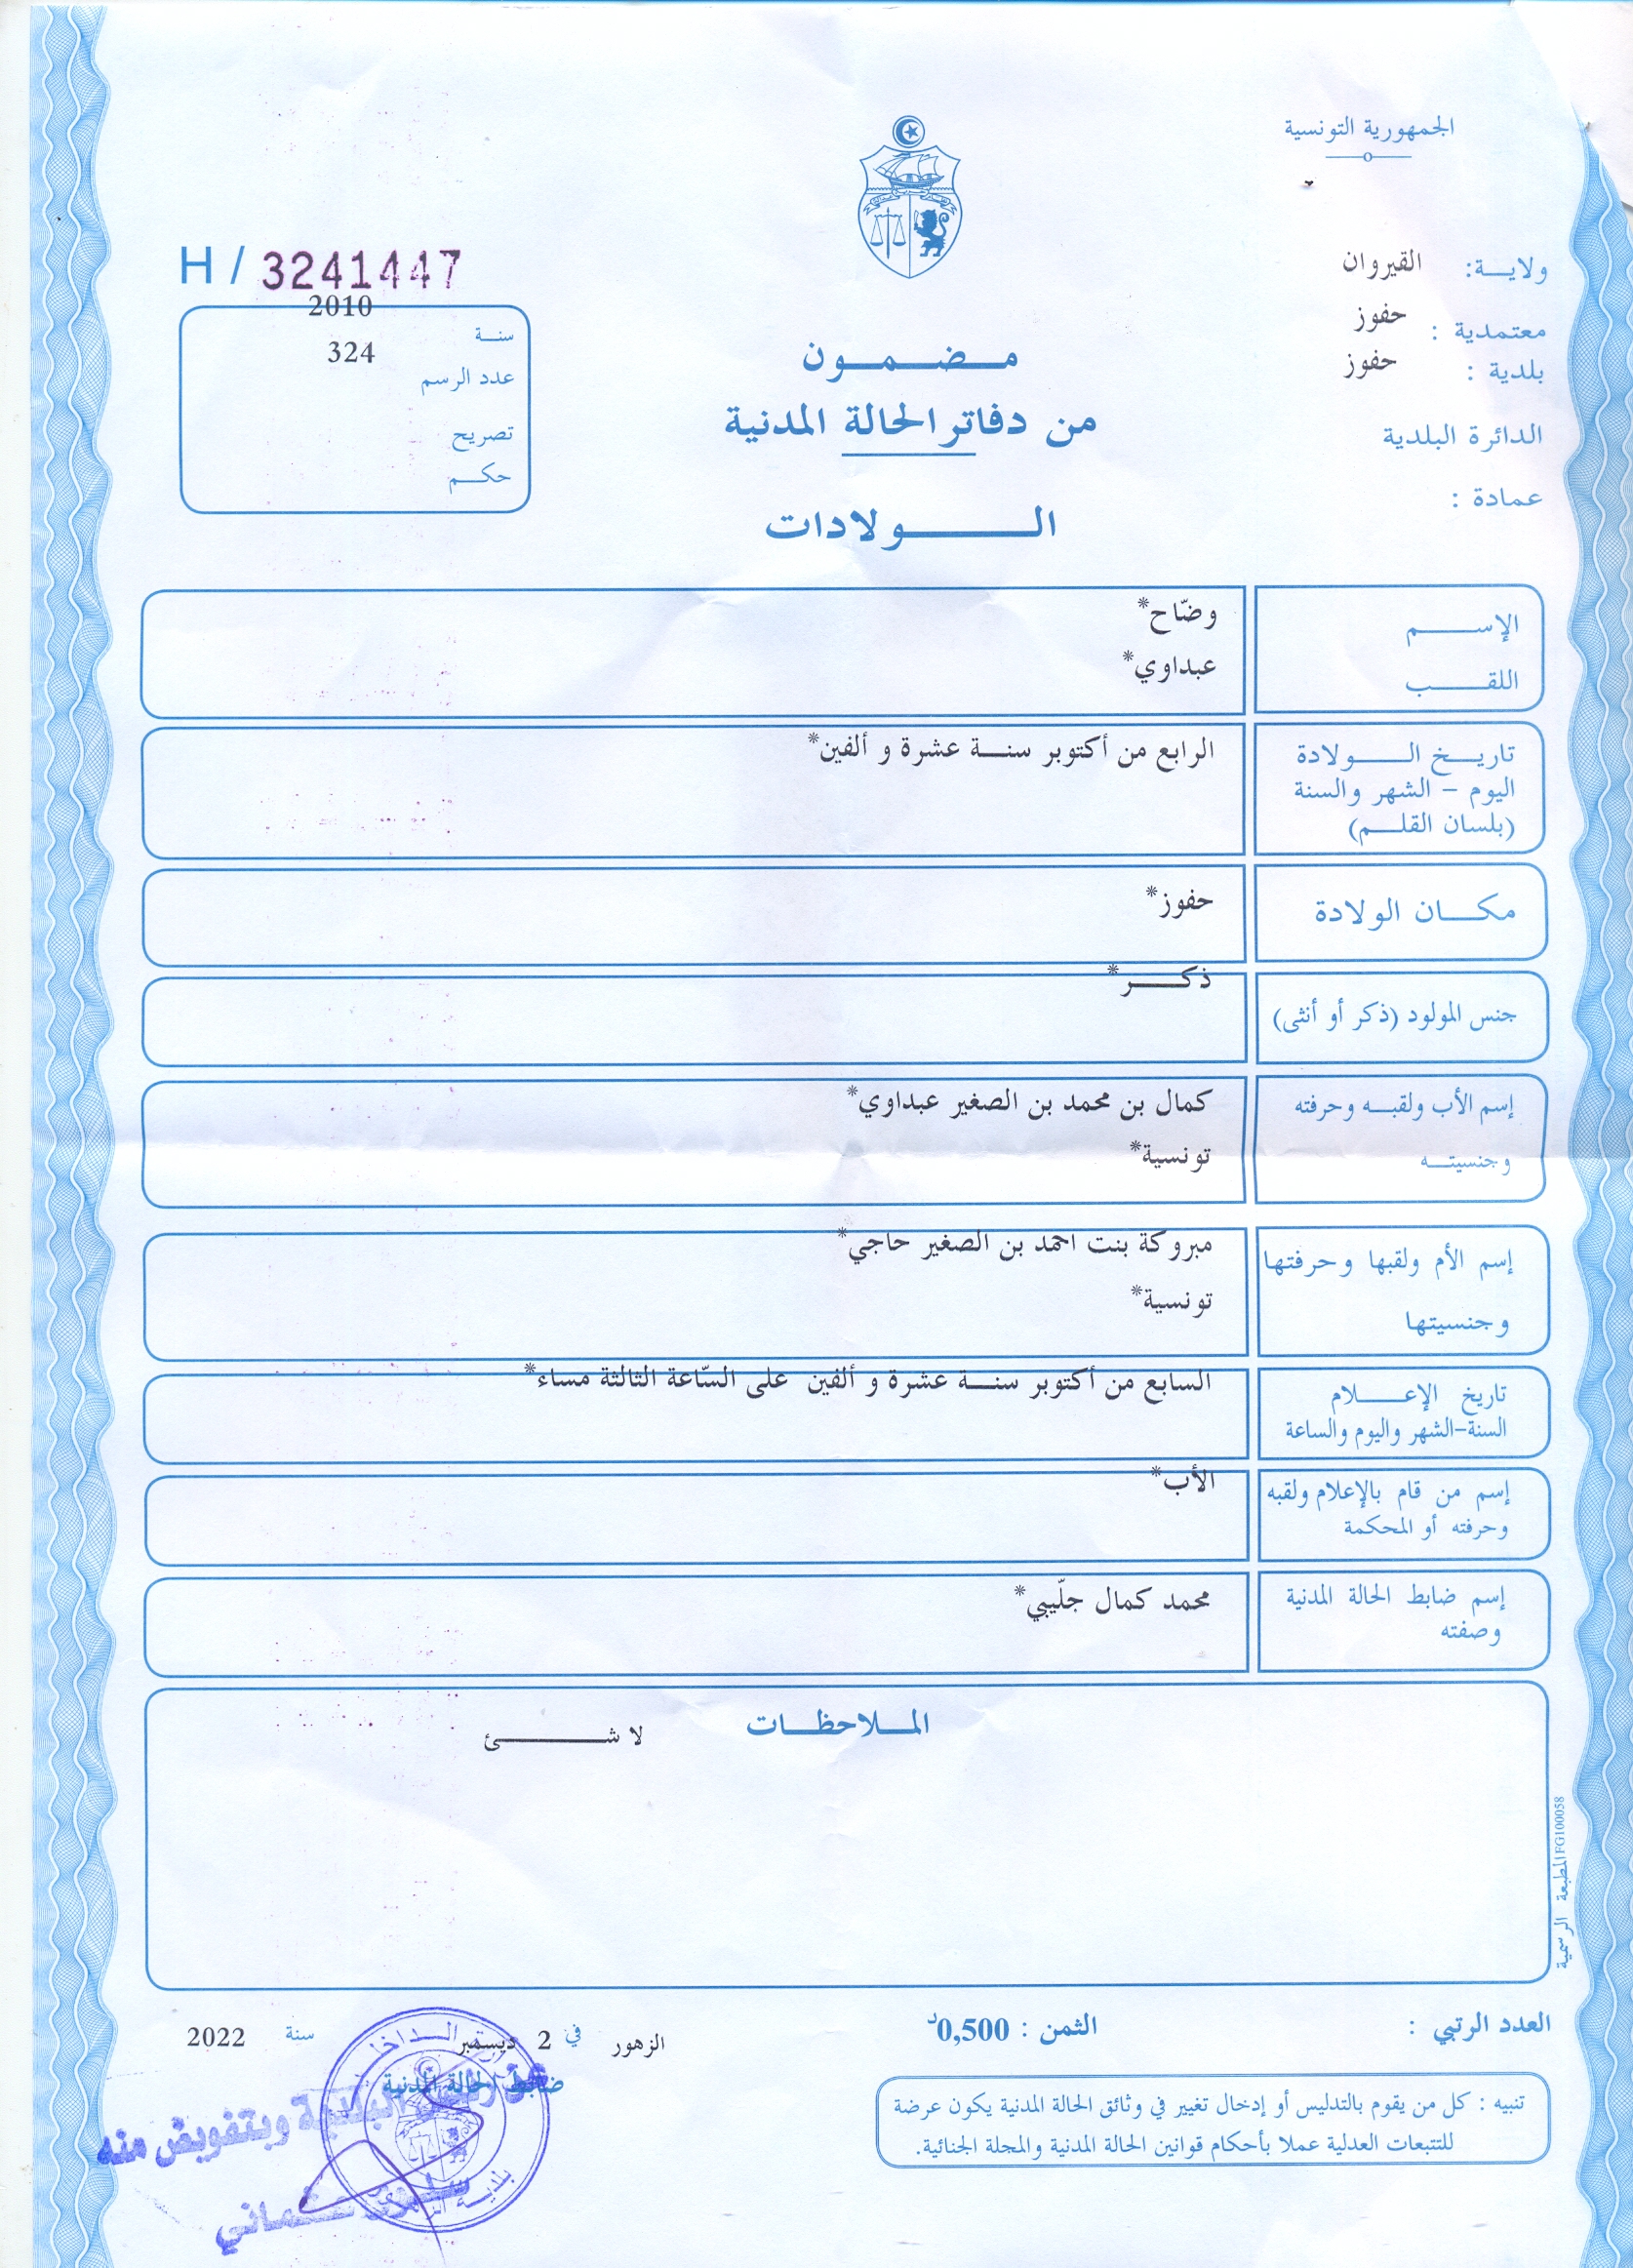 الجمهورية التونسية
ولايـــة: القيروان
معتمدية : حفوز
بلدية : حفوز
الدائرة البلدية
عمادة :
H / 3241447
سنــة 2010
عدد الرسم 324
تصريح
حكـــم
مـضـمـون
من دفاتر الحالة المدنية
الـــولادات
الإســـم وضّاح*
اللقـــب عبداوي*
تاريــخ الـــولادة الرابع من أكتوبر سنــة عشرة و ألفين*
اليوم – الشهر والسنة
(بلسان القلــم)
مكــان الولادة حفوز*
جنس المولود (ذكر أو أنثى) ذكـــر*
إسم الأب ولقبــه وحرفته كمال بن محمد بن الصغير عبداوي*
وجنسيتــه تونسية*
إسم الأم ولقبها وحرفتها مبروكة بنت احمد بن الصغير حاجي*
وجنسيتها تونسية*
تاريخ الإعـــلام السابع من أكتوبر سنــة عشرة و ألفين على السّاعة الثالثة مساء*
السنة-الشهر واليوم والساعة
إسم من قام بالإعلام ولقبه الأب*
وحرفته أو المحكمة
إسم ضابط الحالة المدنية محمد كمال جلّيبي*
وصفته
المــلاحظــات
لا شـــئ
المطبعة الرسمية FG100058
العدد الرتبي :
الثمن : 0,500د
الزهور في 2 ديسمبر سنة 2022
ضابط الحالة المدنية
تنبيه : كل من يقوم بالتدليس أو إدخال تغيير في وثائق الحالة المدنية يكون عرضة
للتتبعات العدلية عملا بأحكام قوانين الحالة المدنية والمجلة الجنائية.
البلدية وبتفويض منه